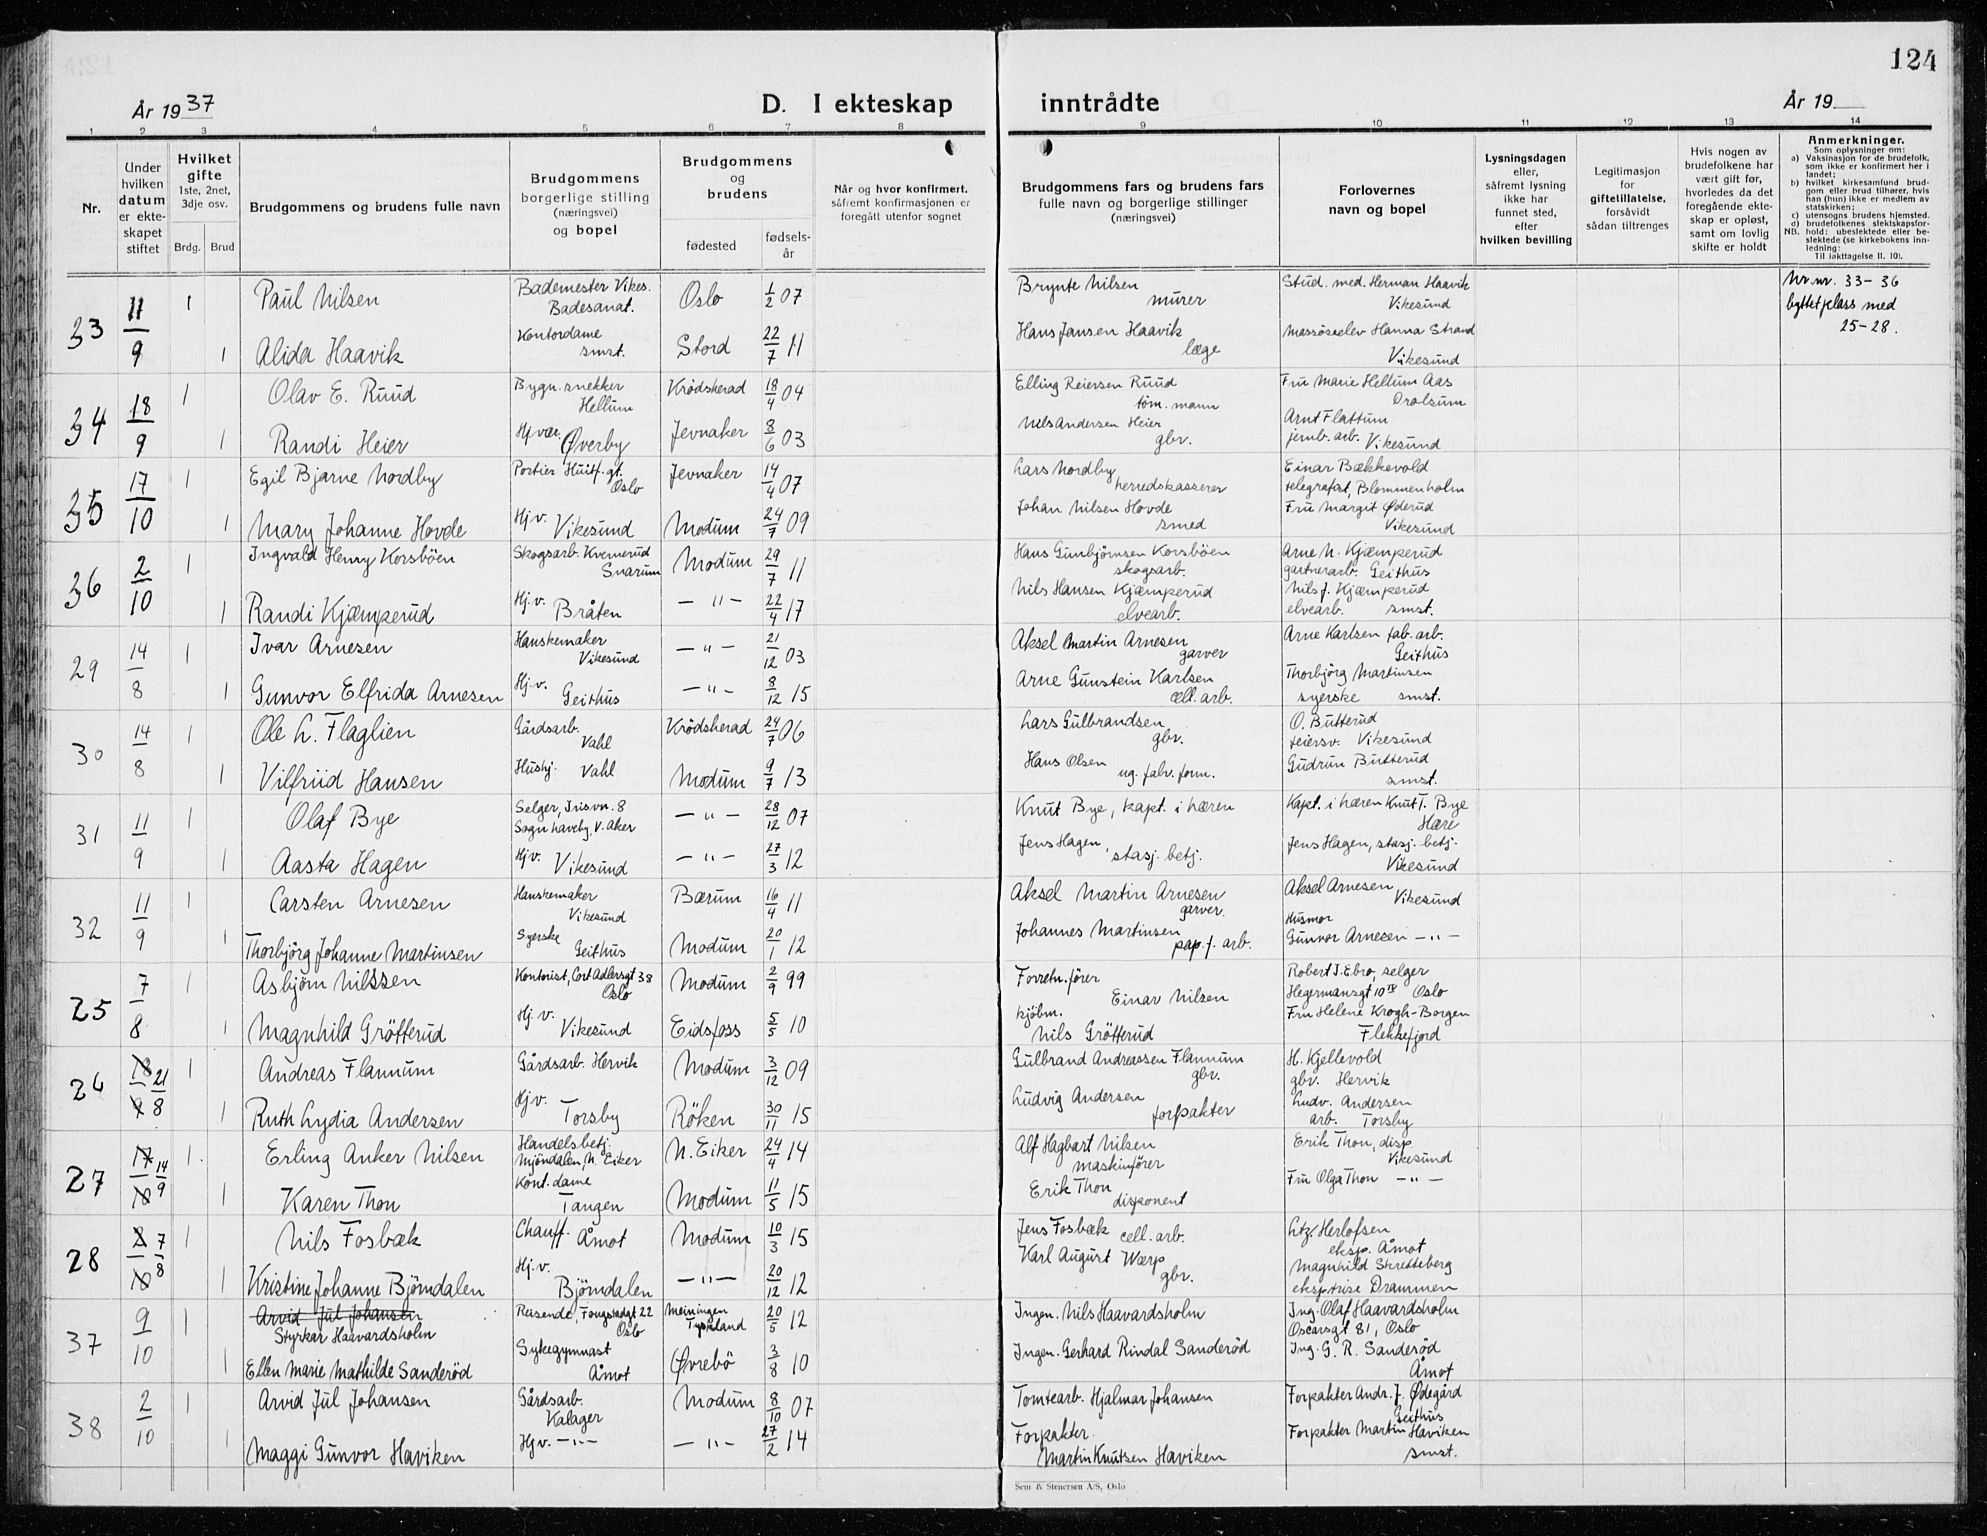 124
År 1937
D. I ekteskap inntrådte
År 19
1 2 3 4 5 6 7 8 9 10 11 12 13 14
Nr.
Under hvilken datum er ekteskapet stiftet
Hvilket gifte
1ste, 2net, 3dje osv.
Brdg. Brud
Brudgommens og brudens fulle navn
Brudgommens borgerlige stilling (næringsvei) og bopel
Brudgommens og brudens
fødested fødselsår
Når og hvor konfirmert, såfremt konfirmasjonen er foregått utenfor sognet
Brudgommens fars og brudens fars fulle navn og borgerlige stillinger (næringsvei)
Forlovernes navn og bopel
Lysningsdagen eller, såfremt lysning ikke har funnet sted, efter hvilken bevilling
Legitimasjon for giftetillatelse, forsåvidt sådan tiltrenges
Hvis nogen av brudefolkene har vært gift før, hvorledes da det foregående ekteskap er opløst, samt om lovlig skifte er holdt
Anmerkninger.
Som oplysninger om:
a) Vaksinasjon for de brudefolk, som ikke er konfirmert her i landet;
b) hvilket kirkesamfund brudgom eller brud tilhører, hvis han (hun) ikke er medlem av statskirken;
c) utensogns brudens hjemsted.
d) brudefolkenes slektskapsforhold: ubeslektede eller beslektede (se kirkebokens innledning:
NB. Til iakttagelse II. 10).
33 11/9 1 Paul Nilsen Bademester Vikes. Badesanat. Oslo 1/2 07 Brynte Nilsen murer Stud. med. Herman Haavik Vikesund Nr. nr. 33-36 byttet plass med 25-28.
1 Alida Haavik Kontordame smst. Stord 22/7 11 Hans Jansen Haavik læge Massøseelev Hanna Strand Vikesund
34 18/9 1 Olav E. Ruud Bygn. snekker Hellum Krødsherad 18/4 04 Elling Reiersen Ruud töm. mann Fru Marie Hellum Aas Drolsum
1 Randi Heier Hj.vær. Øverby Jevnaker 8/6 03 Nils Andersen Heier gbr. Arnt Flattum jernb. arb. Vikesund
35 17/10 1 Egil Bjarne Nordby Portier Huitf. gt. Oslo Jevnaker 14/4 07 Lars Nordby herredskasserer Einar Bækkevold telegrafist, Blommenholm
1 Mary Johanne Hovde Hj.v. Vikesund Modum 24/7 09 Johan Nilsen Hovde smed Fru Margit Øderud Vikesund
36 2/10 1 Ingvald Henry Korsböen Skogsarb. Kvernerud Snarum Modum 29/7 11 Hans Gunbjörnsen Korsböen skogsarb. Arne N. Kjæmperud gartnerarb. Geithus
1 Randi Kjæmperud Hj.v. Bråten -"- 22/4 17 Nils Hansen Kjæmperud elvearb. Nils J. Kjæmperud elvearb. smst.
29 14/8 1 Ivar Arnesen Hanskemaker Vikesund -"- 21/12 03 Aksel Martin Arnesen garver Arne Karlsen fab. arb. Geithus
1 Gunvor Elfrida Arnesen Hj.v. Geithus -"- 8/12 15 Arne Gunstein Karlsen cell. arb. Thorbjörg Martinsen syerske smst.
30 14/8 1 Ole L. Flaglien Gårdsarb. Vahl Krødsherad 24/7 06 Lars Gulbrandsen gbr. O. Butterud feiersv. Vikesund
1 Vilfriid Hansen Hushj. Vahl Modum 9/7 13 Hans Olsen ug. fabr. form. Gudrun Butterud smst.
31 11/9 1 Olaf Bye Selger, Irisvn. 8 Sogn haveby, V. Aker -"- 28/12 07 Knut Bye, kapt. i hæren Kapt. i hæren Knut T. Bye Hære
1 Aasta Hagen Hj.v. Vikesund -"- 27/3 12 Jens Hagen, stasj. betj. Jens Hagen, stasj. betj. Vikesund
32 11/9 1 Carsten Arnesen Hanskemaker Vikesund Bærum 16/4 11 Aksel Martin Arnesen garver. Aksel Arnesen Vikesund
1 Thorbjörg Johanne Martinsen Syerske Geithus Modum 20/1 12 Johannes Martinsen pap. f. arb. Husmor Gunvor Arnesen -"-
25 7/8 1 Asbjörn Nilssen Kontorist, Cort Adlersgt 38 Oslo Modum 2/9 99 Forretn. fører Einar Nilsen Robert J. Ebro, selger Hegermansgt 10 IV Oslo
1 Magnhild Grötterud Hj.v. Vikesund Eidsfoss 5/5 10 kjöbm. Nils Grötterud Fru Helene Krogh-Borgen Flekkefjord
26 18/9 21/8 1 Andreas Flannum Gårdsarb. Hervik Modum 3/12 09 Gulbrand Andreassen Flannum gbr. H. Kjellevold gbr. Hervik
1 Ruth Lydia Andersen Hj.v. Torsby Röken 30/11 15 Ludvig Andersen forpakter Ludv. Andersen arb. Torsby
27 17/10 14/9 1. Erling Anker Nilsen Handelsbetj. Mjöndalen, N. Eiker N. Eiker 24/4 14 Alf Hagbart Nilsen maskinfører Erik Thon, disp Vikesund
1 Karen Thon Kont. dame Tangen Modum 11/5 15 Erik Thon disponent Fru Olga Thon -"-
28 8/10 7/8 1 Nils Fosbæk Chauff. Åmot Modum 10/3 15 Jens Fosbæk cell. arb. Herlofsen eksp. Åmot
1 Kristine Johanne Björndalen Hj.v. Björndalen -"- 20/12 12 Karl August Wærp gbr. Magnhild Skretteberg ekspetrise Drammen
37 9/10 1 Arvid Jul Johansen Styrkar Haavardsholm Reisende, Fougstadgt 22 Oslo Meiningen Tyskland 20/5 12 Ingen. Nils Haavardsholm Ing. Olaf Haavardsholm Oscarsgt 81, Oslo
1 Ellen Marie Mathilde Sanderød Sykegymnast Åmot Øvrebö 3/8 10 Ingen. Gerhard Rindal Sanderød Ing. G. R. Sanderød Åmot
38 2/10 1 Arvid Jul Johansen Gårdsarb. Kalager Modum 8/10 07 Tomtearb. Hjalmar Johansen Forpakter Andr. J. Ødegård Geithus
1 Maggi Gunvor Haviken Hj.v. -"- -"- 27/2 14 Forpakter. Martin Knutsen Haviken Forpakter Martin Haviken smst.
Sem & Stenersen A/S, Oslo